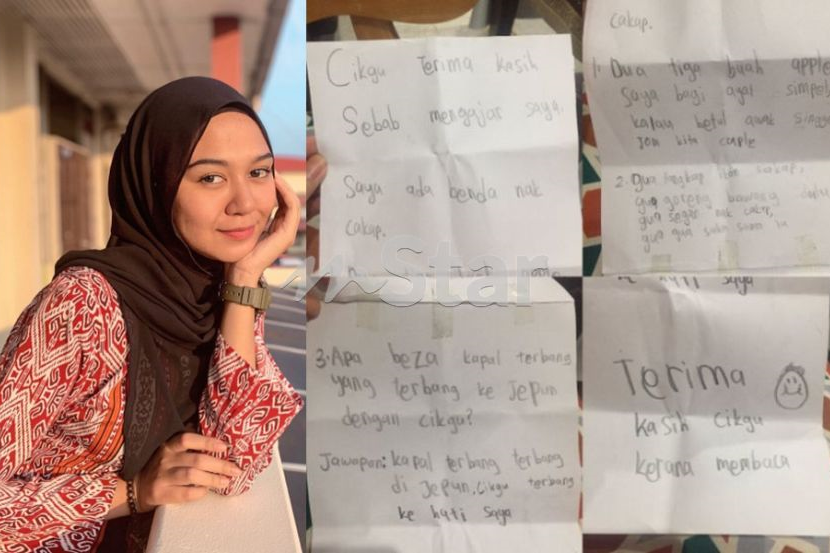 Cikgu Terima kasih
Sebab mengajar saya.
Saya ada benda nak
cakap.
mStar
cakap.
1. Dua tiga buah apple
saya bagi agar simpel
kalau betul awak single
jom kita couple
2. Gua tangkap ikan
gua goreng bawang
gua segar nak cakap,
gua gua suka sama lu
3. Apa beza kapal terbang
yang terbang ke Jepun
dengan cikgu?
Jawapan: kapal terbang terbang
di Jepun. Cikgu terbang
ke hati saya
hati saya
Terima
kasih cikgu
kerana membaca